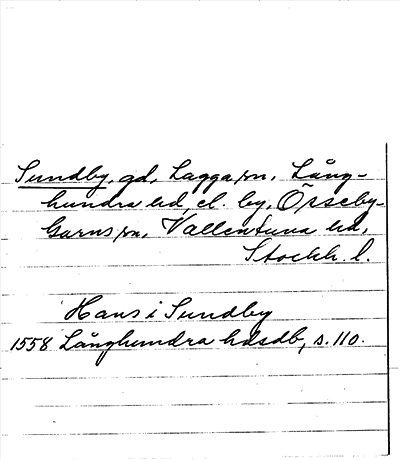 Sundby, gd, Lagga sn, Lång-
hundra hd, el. by, Össeby-
Garns sn, Vallentuna hd,
Stockh. l.
Hans i Sundby
1558 Långhundra hdsdb, s. 110.